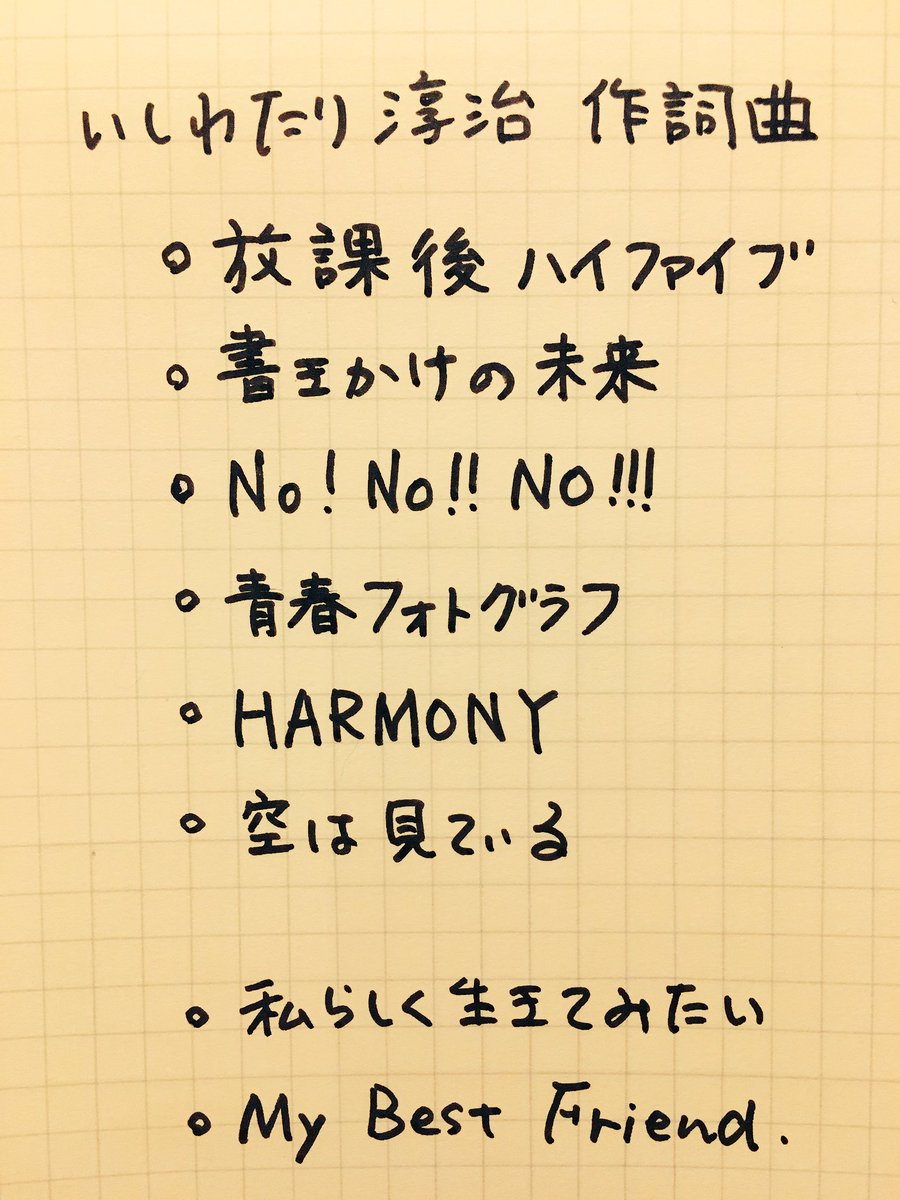 いしわたり淳治 作詞曲
。放課後ハイファイブ
。書きかけの未来
。No! No!! NO!!!
。青春フォトグラフ
。HARMONY
。空は見ている
。私らしく生きてみたい
。My Best Friend.